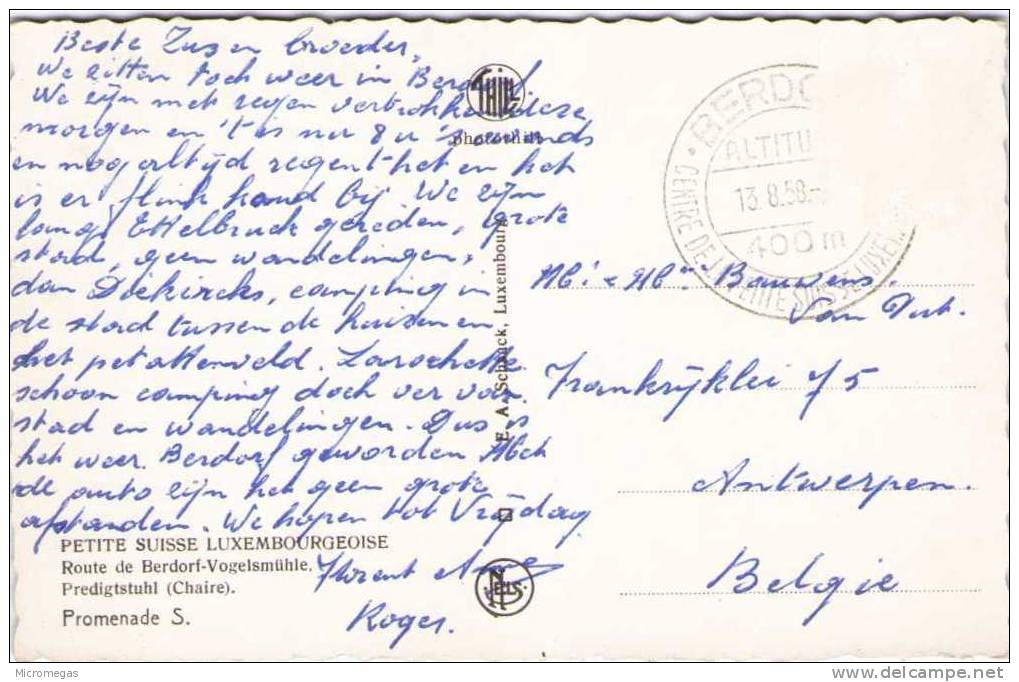 Beste Zus en broeder,
We zitten toch weer in Berdorf.
We zijn met regen vertrokken deze
morgen en 't is nu 8 u 's avonds
en nog altijd regent het en het
is er flink koud bij. We zijn
langs Ettelbruck gereden, grote
stad, geen wandelingen,
dan Diekirch, camping in
de stad tussen de huizen en
het patattenveld. Larochette
schoon camping doch ver van
stad en wandelingen. Dus is
het weer Berdorf geworden Met
de auto zijn het geen grote
afstanden. We hopen tot Vrijdag
Florent
Roger.
PETITE SUISSE LUXEMBOURGEOISE
Route de Berdorf-Vogelsmühle.
Predigtstuhl (Chaire).
Promenade S.
THILL
Photothill
E. A. Schaack, Luxembourg
NELS
BERDO
ALTITU
13.8.58.-
400 m
CENTRE DE LA PETITE SUISSE LUXEM
Mr. & Mme. Bauwens.
Van Dut.
Frankrijklei 75
Antwerpen.
Belgie
Micromegas
www.delcampe.net